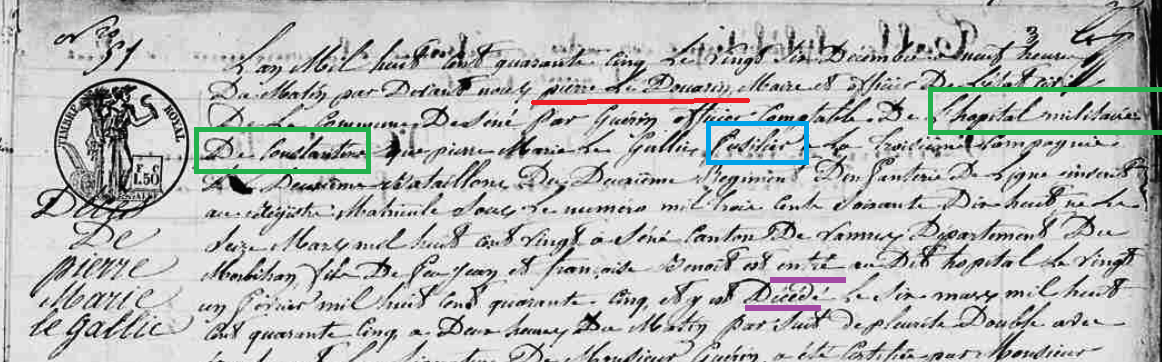 N° 51
L'an Mil huit cent quarante Cinq Le vingt Six Decembre a neuf heure
Du Matin par Devant nous pierre Le Douarin Maire et officier De L'état civil
De La Commune De Séné par Guérin officier Comptable De L'hopital militaire
De Constantine que pierre Marie Le Gallic Fusilier a La troisieme Compagnie
Du Deuxième Bataillons Du Deuxième Regiment D'enfanterie De Ligne inscrit
au régistre Matricule Sous Le numéro mil trois cent soixante Dix huit né Le
Seize Mars mil huit cent vingt à Séné Canton De Vannes Departement Du
Morbihan fils De feu Jean et françoise Benoit est entré au Dit hopital Le vingt
un fevrier mil huit cent quarante cinq et y est Décédé Le Six mars mil huit
Cent quarante Cinq a Deux heures Du Matin par Suit de pleurite Double avec
De Monsieur Guérin a été Certifiée par Monsieur
TIMBRE ROYAL
1.50
Décès
De
pierre
Marie
le Gallic